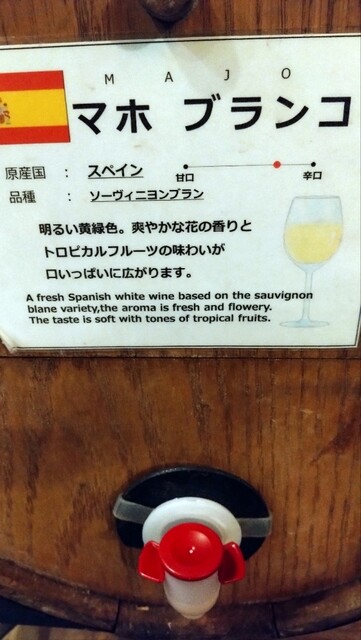 MAJO
マホ ブランコ
原産国 : スペイン
甘口 辛口
品種 : ソーヴィニヨンブラン
明るい黄緑色。爽やかな花の香りと
トロピカルフルーツの味わいが
口いっぱいに広がります。
A fresh Spanish white wine based on the sauvignon
blane variety,the aroma is fresh and flowery.
The taste is soft with tones of tropical fruits.